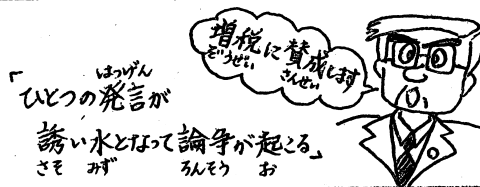 増税に賛成します
ぞうぜい さんせい
はつげん
「ひとつの発言が
誘い水となって論争が起こる」
さそ みず ろんそう お